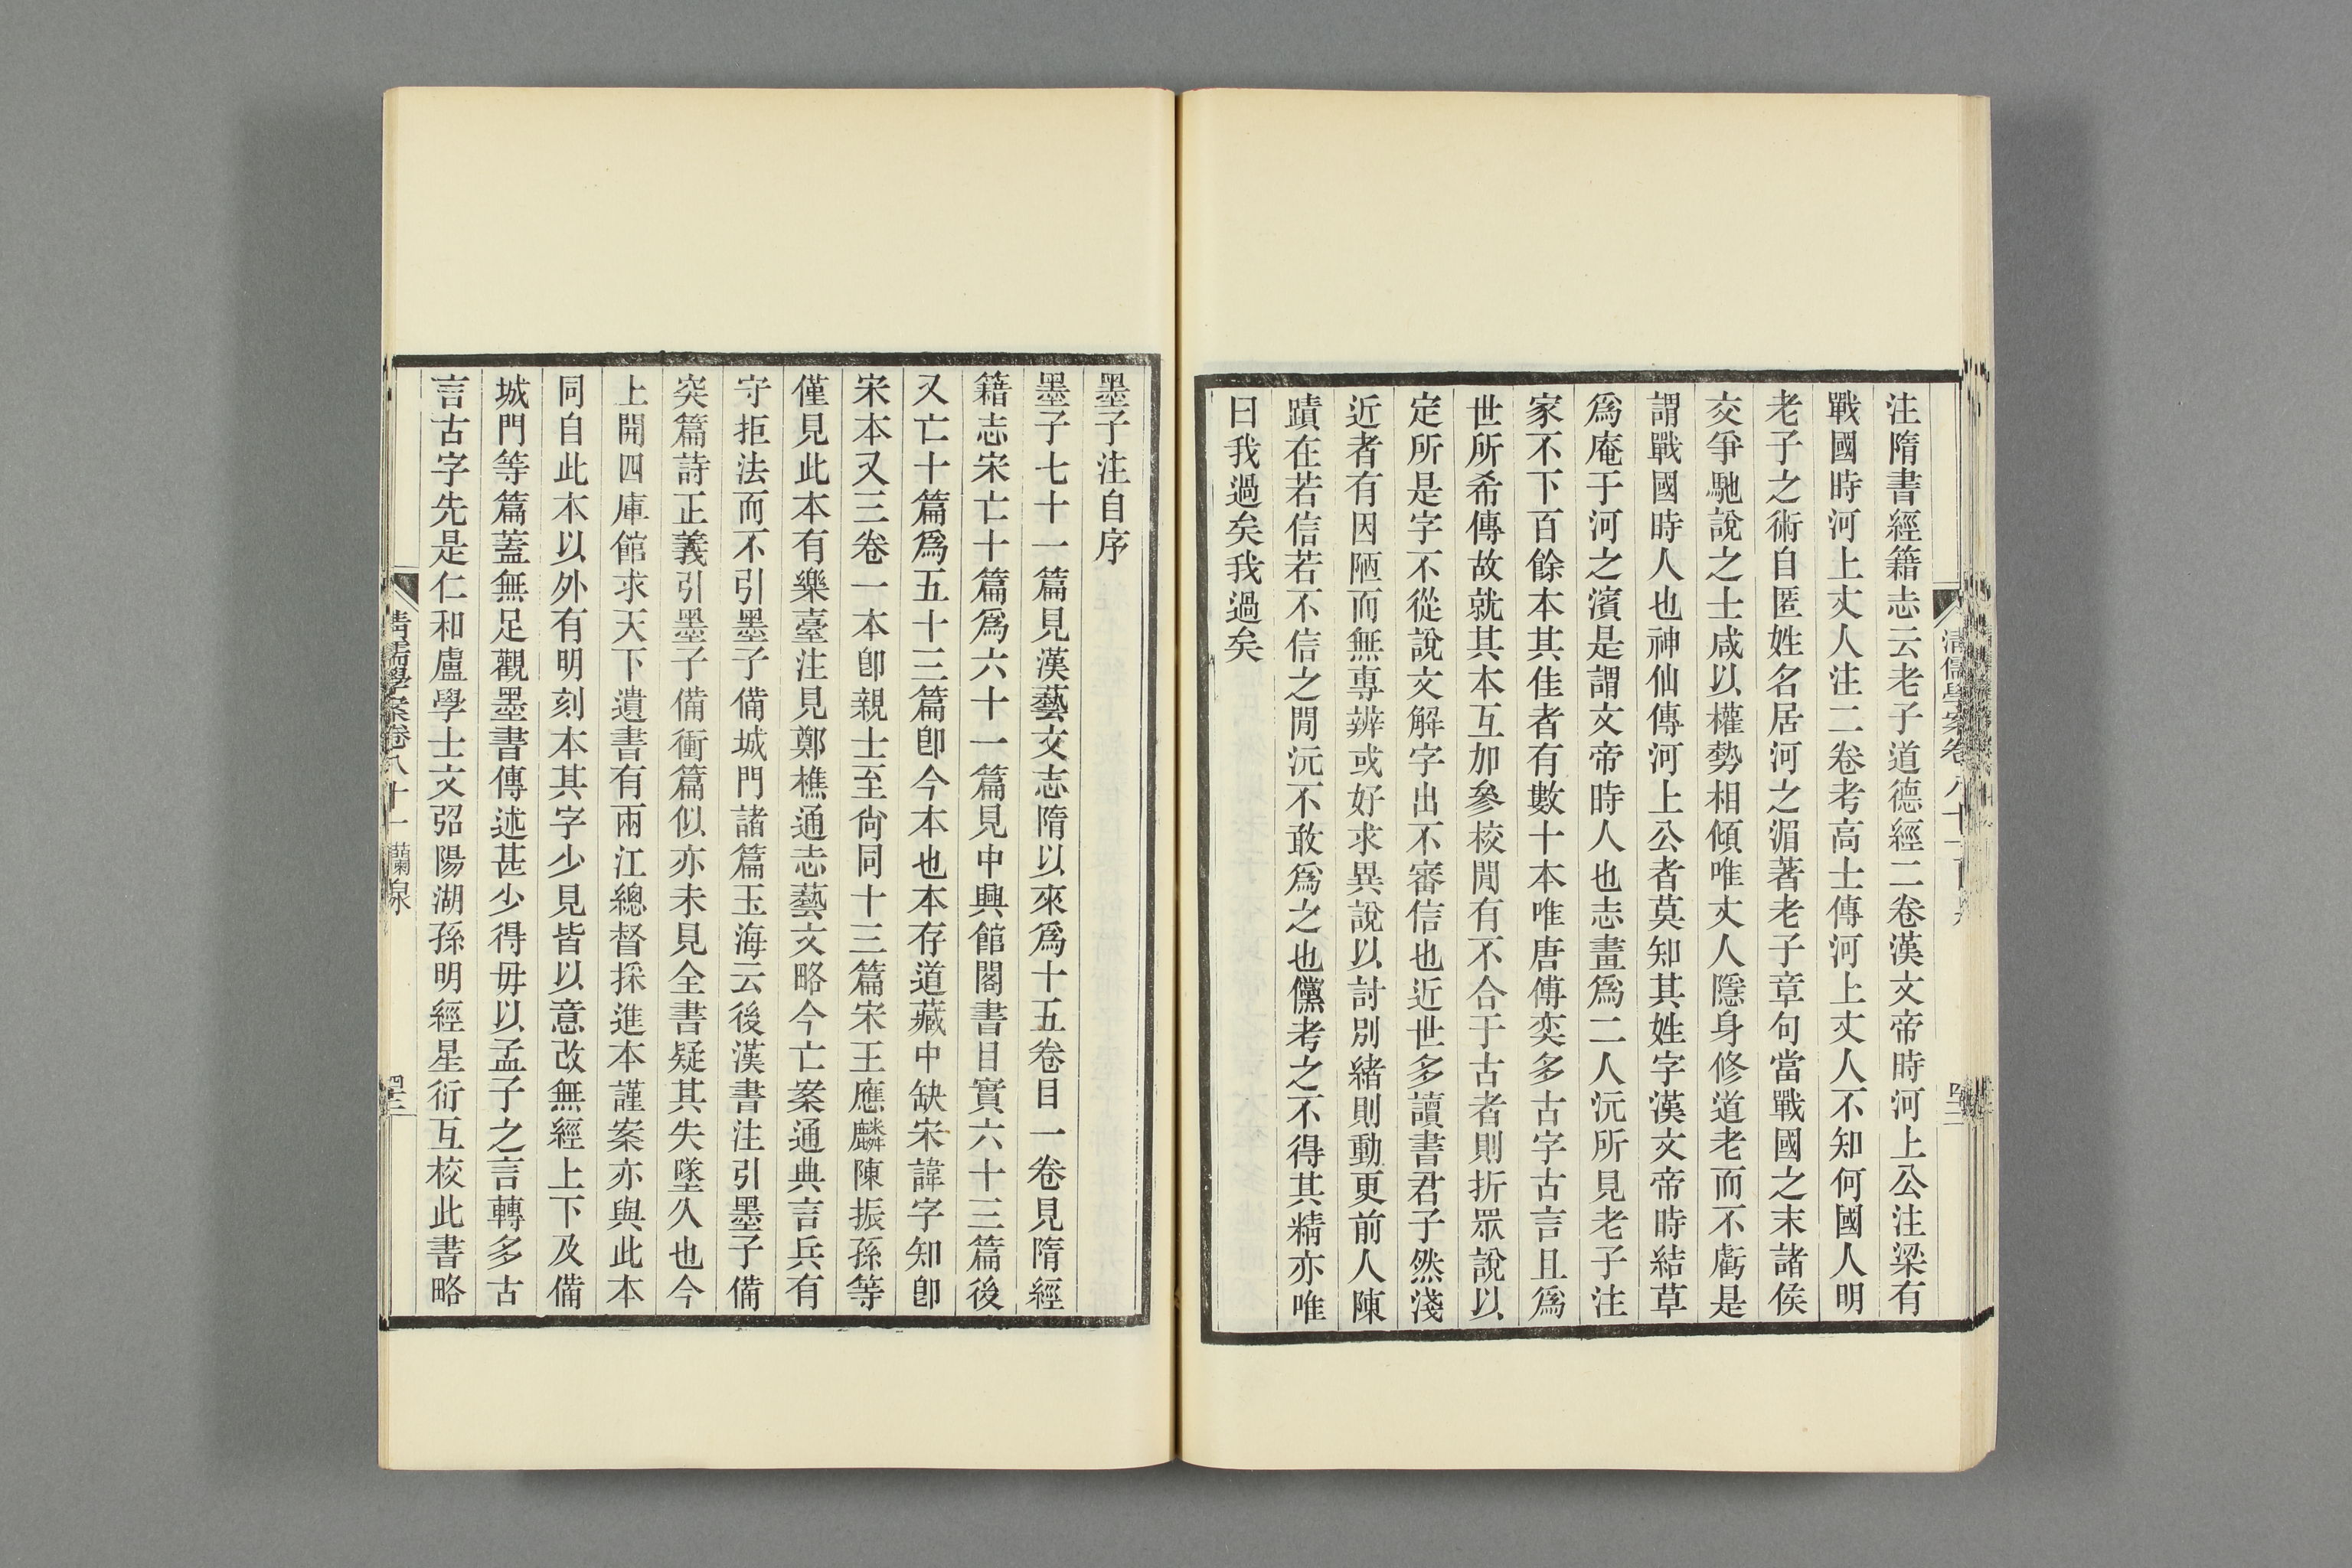 注隋書經籍志云老子道德經二卷漢文帝時河上公注梁有
戰國時河上丈人注二卷考高士傳河上丈人不知何國人明
老子之術自匿姓名居河之湄著老子章句當戰國之末諸侯
交爭馳說之士咸以權勢相傾唯丈人隱身修道老而不虧是
謂戰國時人也神仙傳河上公者莫知其姓字漢文帝時結草
爲庵于河之濱是謂文帝時人也志畫爲二人沅所見老子注
家不下百餘本其佳者有數十本唯唐傅奕多古字古言且爲
世所希傳故就其本互加參校閒有不合于古者則折眾說以
定所是字不從說文解字出不審信也近世多讀書君子然淺
近者有因陋而無專辨或好求異說以討別緒則動更前人陳
蹟在若信若不信之閒沅不敢爲之也儻考之不得其精亦唯
曰我過矣我過矣
清儒學案卷八十一
墨子注自序
墨子七十一篇見漢藝文志隋以來爲十五卷目一卷見隋經
籍志宋亡十篇爲六十一篇見中興館閣書目實六十三篇後
又亡十篇爲五十三篇卽今本也本存道藏中缺宋諱字知卽
宋本又三卷一本卽親士至尙同十三篇宋王應麟陳振孫等
僅見此本有樂臺注見鄭樵通志藝文略今亡案通典言兵有
守拒法而不引墨子備城門諸篇玉海云後漢書注引墨子備
突篇詩正義引墨子備衝篇似亦未見全書疑其失墜久也今
上開四庫館求天下遺書有兩江總督採進本謹案亦與此本
同自此本以外有明刻本其字少見皆以意改無經上下及備
城門等篇蓋無足觀墨書傳述甚少得毋以孟子之言轉多古
言古字先是仁和盧學士文弨陽湖孫明經星衍互校此書略
清儒學案卷八十一 蘭泉
四三